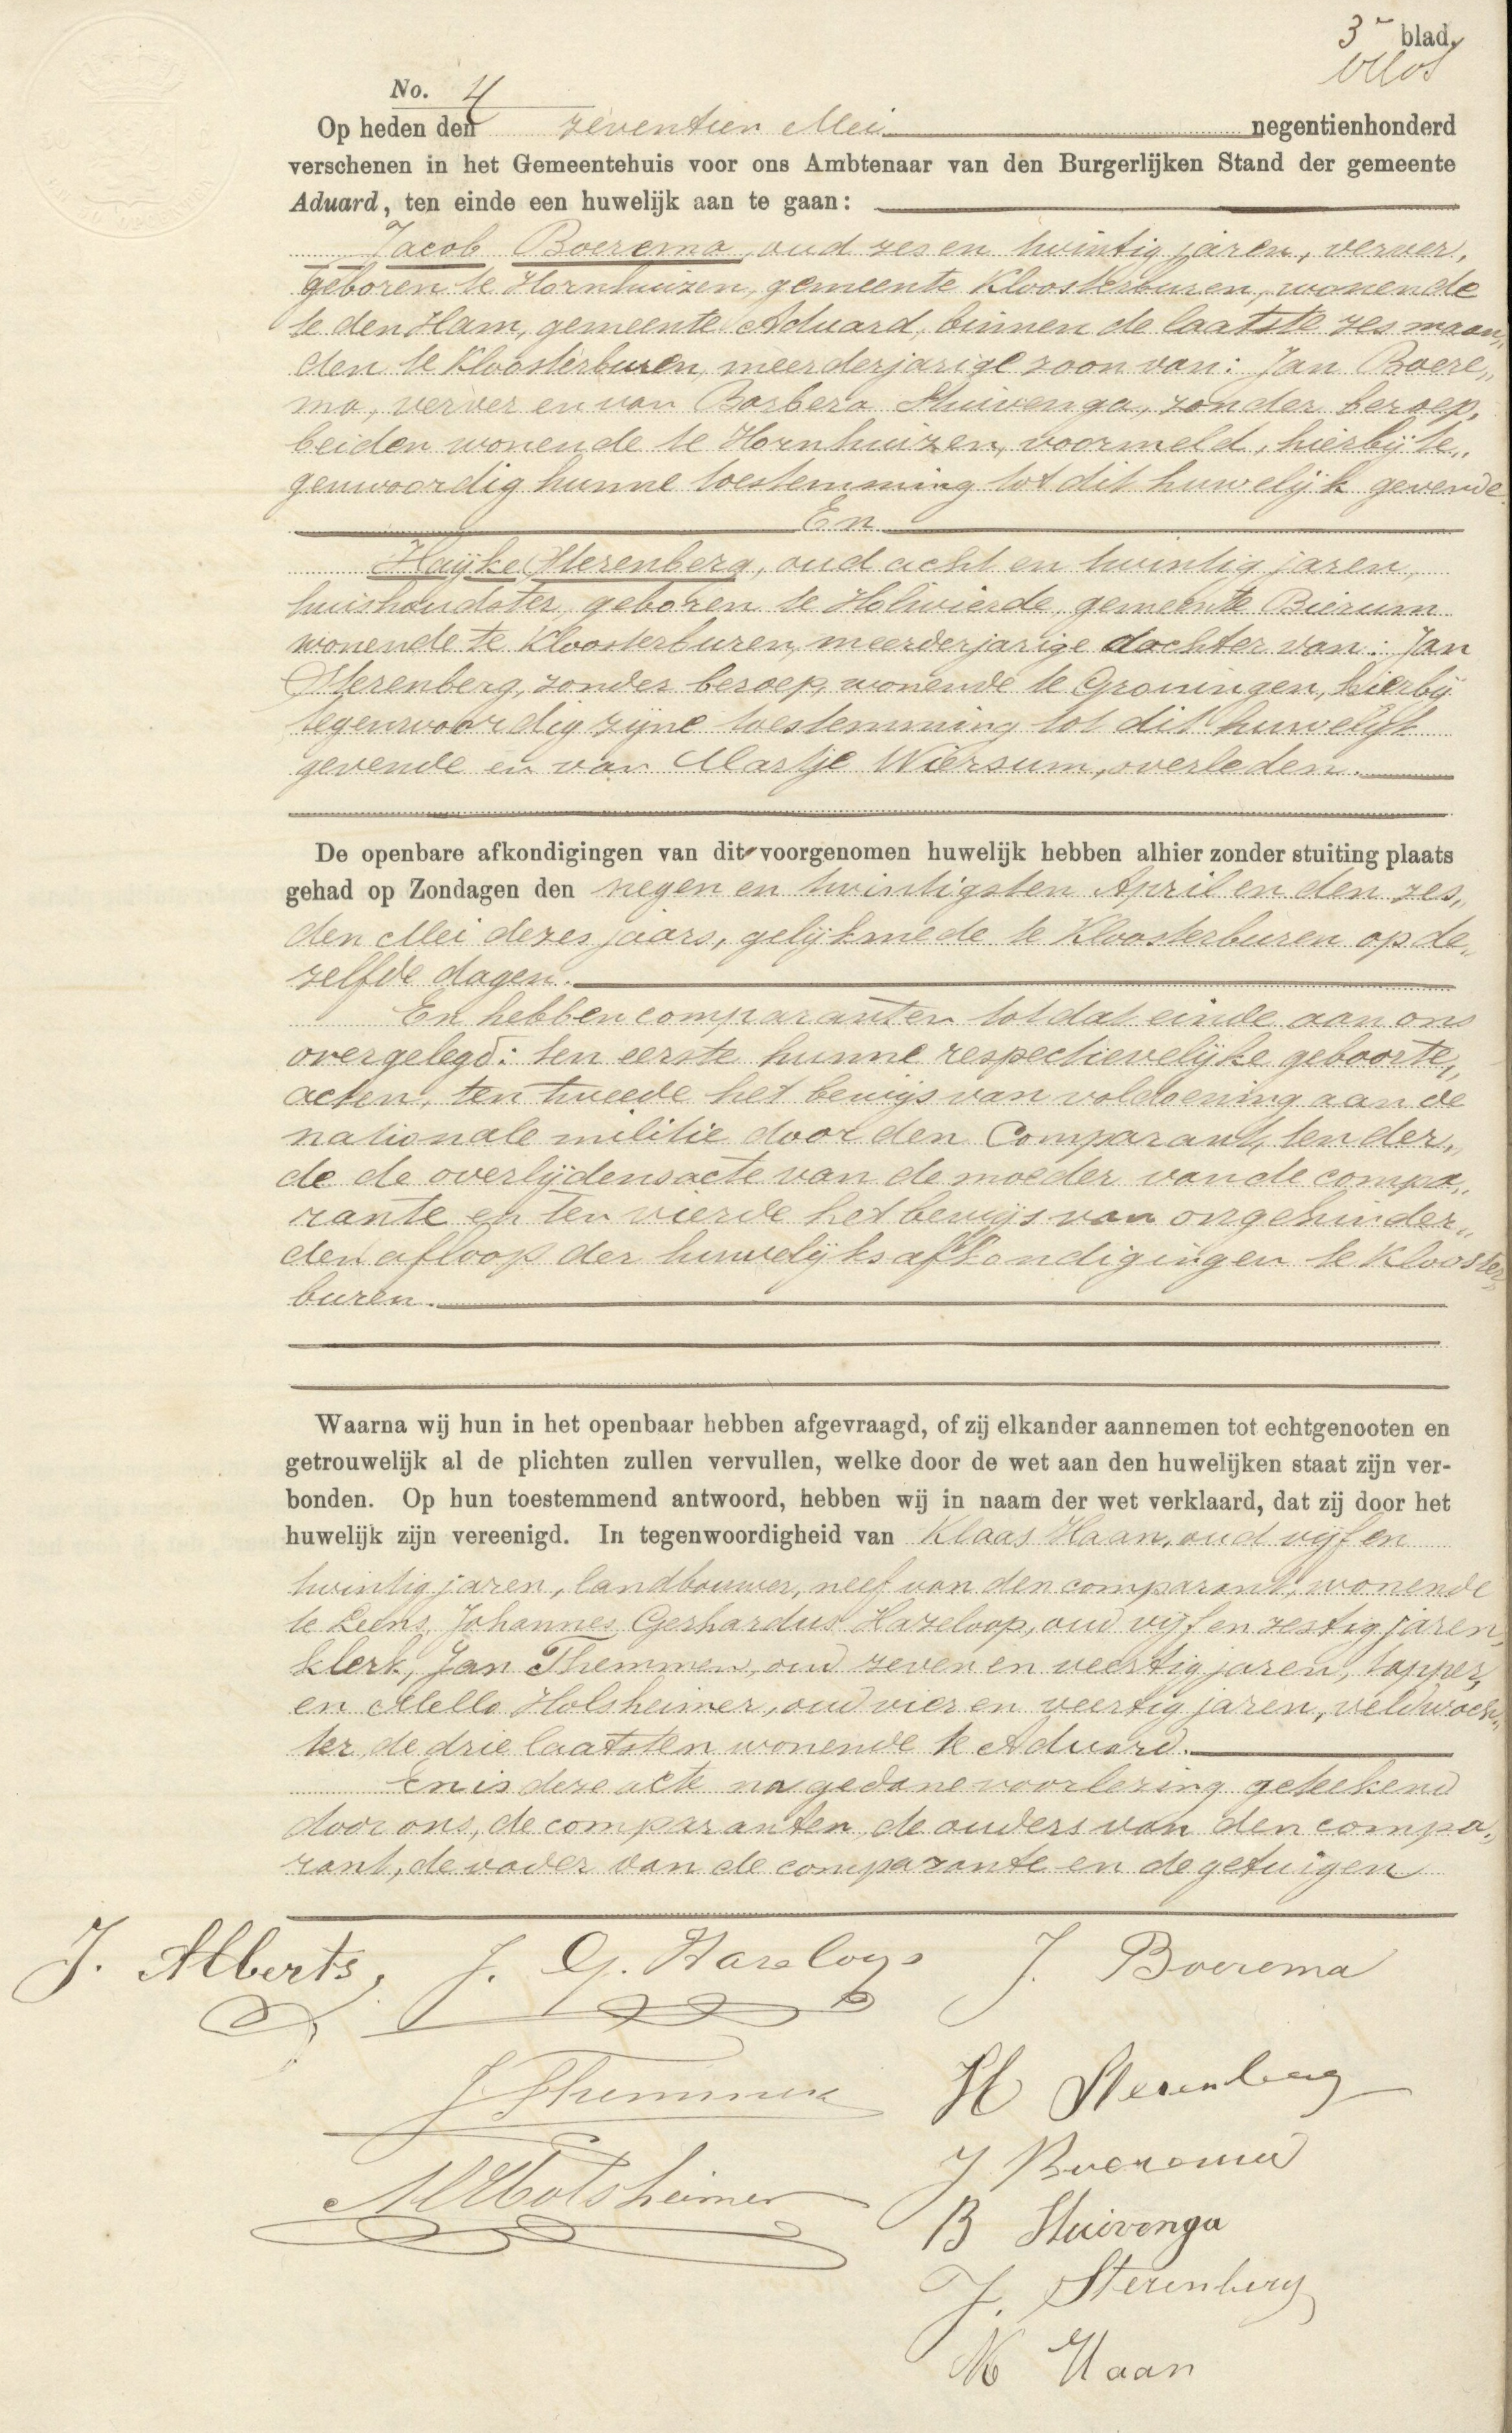 3e blad,
No. 4
Op heden den zeventien Mei negentienhonderd
verschenen in het Gemeentehuis voor ons Ambtenaar van den Burgerlijken Stand der gemeente
Aduard, ten einde een huwelijk aan te gaan:
Jacob Boerema, oud zes en twintig jaren, verver,
geboren te Hornhuizen, gemeente Kloosterburen, wonende
te den Ham, gemeente Aduard, binnen de laatste zes maan„
den te Kloosterburen, meerderjarige zoon van: Jan Boere„
ma, verver en van Barbera Stuivenga, zonder beroep,
beiden wonende te Hornhuizen, voormeld, hierbij te„
genwoordig hunne toestemming tot dit huwelijk gevende
En
Haijke Sterenberg, oud acht en twintig jaren,
huishoudster, geboren te Holwierde, gemeente Bierum
wonende te Kloosterburen, meerderjarige dochter van: Jan
Sterenberg, zonder beroep, wonende te Groningen, hierbij
tegenwoordig zijne toestemming tot dit huwelijk
gevende en van Martje Wiersum, overleden.
De openbare afkondigingen van dit voorgenomen huwelijk hebben alhier zonder stuiting plaats
gehad op Zondagen den negen en twintigsten April en den zes„
den Mei dezes jaars, gelijk mede te Kloosterburen op de„
zelfde dagen.
En hebben comparanten tot dat einde aan ons
overgelegd: ten eerste hunne respectievelijke geboorte„
acten, ten tweede het bewijs van voldoening aan de
nationale militie door den Comparant, ten der„
de de overlijdensacte van de moeder van de compa„
rante en ten vierde het bewijs van ongehinder„
den afloop der huwelijksafkondigingen te Klooster„
buren.
Waarna wij hun in het openbaar hebben afgevraagd, of zij elkander aannemen tot echtgenooten en
getrouwelijk al de plichten zullen vervullen, welke door de wet aan den huwelijken staat zijn ver-
bonden. Op hun toestemmend antwoord, hebben wij in naam der wet verklaard, dat zij door het
huwelijk zijn vereenigd. In tegenwoordigheid van Klaas Haan, oud vijf en
twintig jaren, landbouwer, neef van den comparant, wonende
te Leens, Johannes Gerhardus Hazeloop, oud vijf en zestig jaren,
klerk, Jan Themmen, oud zeven en veertig jaren, tapper,
en Mello Holsheimer, oud vier en veertig jaren, veldwach„
ter, de drie laatsten wonende te Aduard.
En is deze acte na gedane voorlezing geteekend
door ons, de comparanten, de ouders van den compa„
rant, de vader van de comparante en de getuigen
J. Alberts, J. G. Hazeloop J. Boerema
J Themmen H Sterenberg
J Boerema
M Holsheimer
B Stuivenga
J. Sterenberg
K Haan